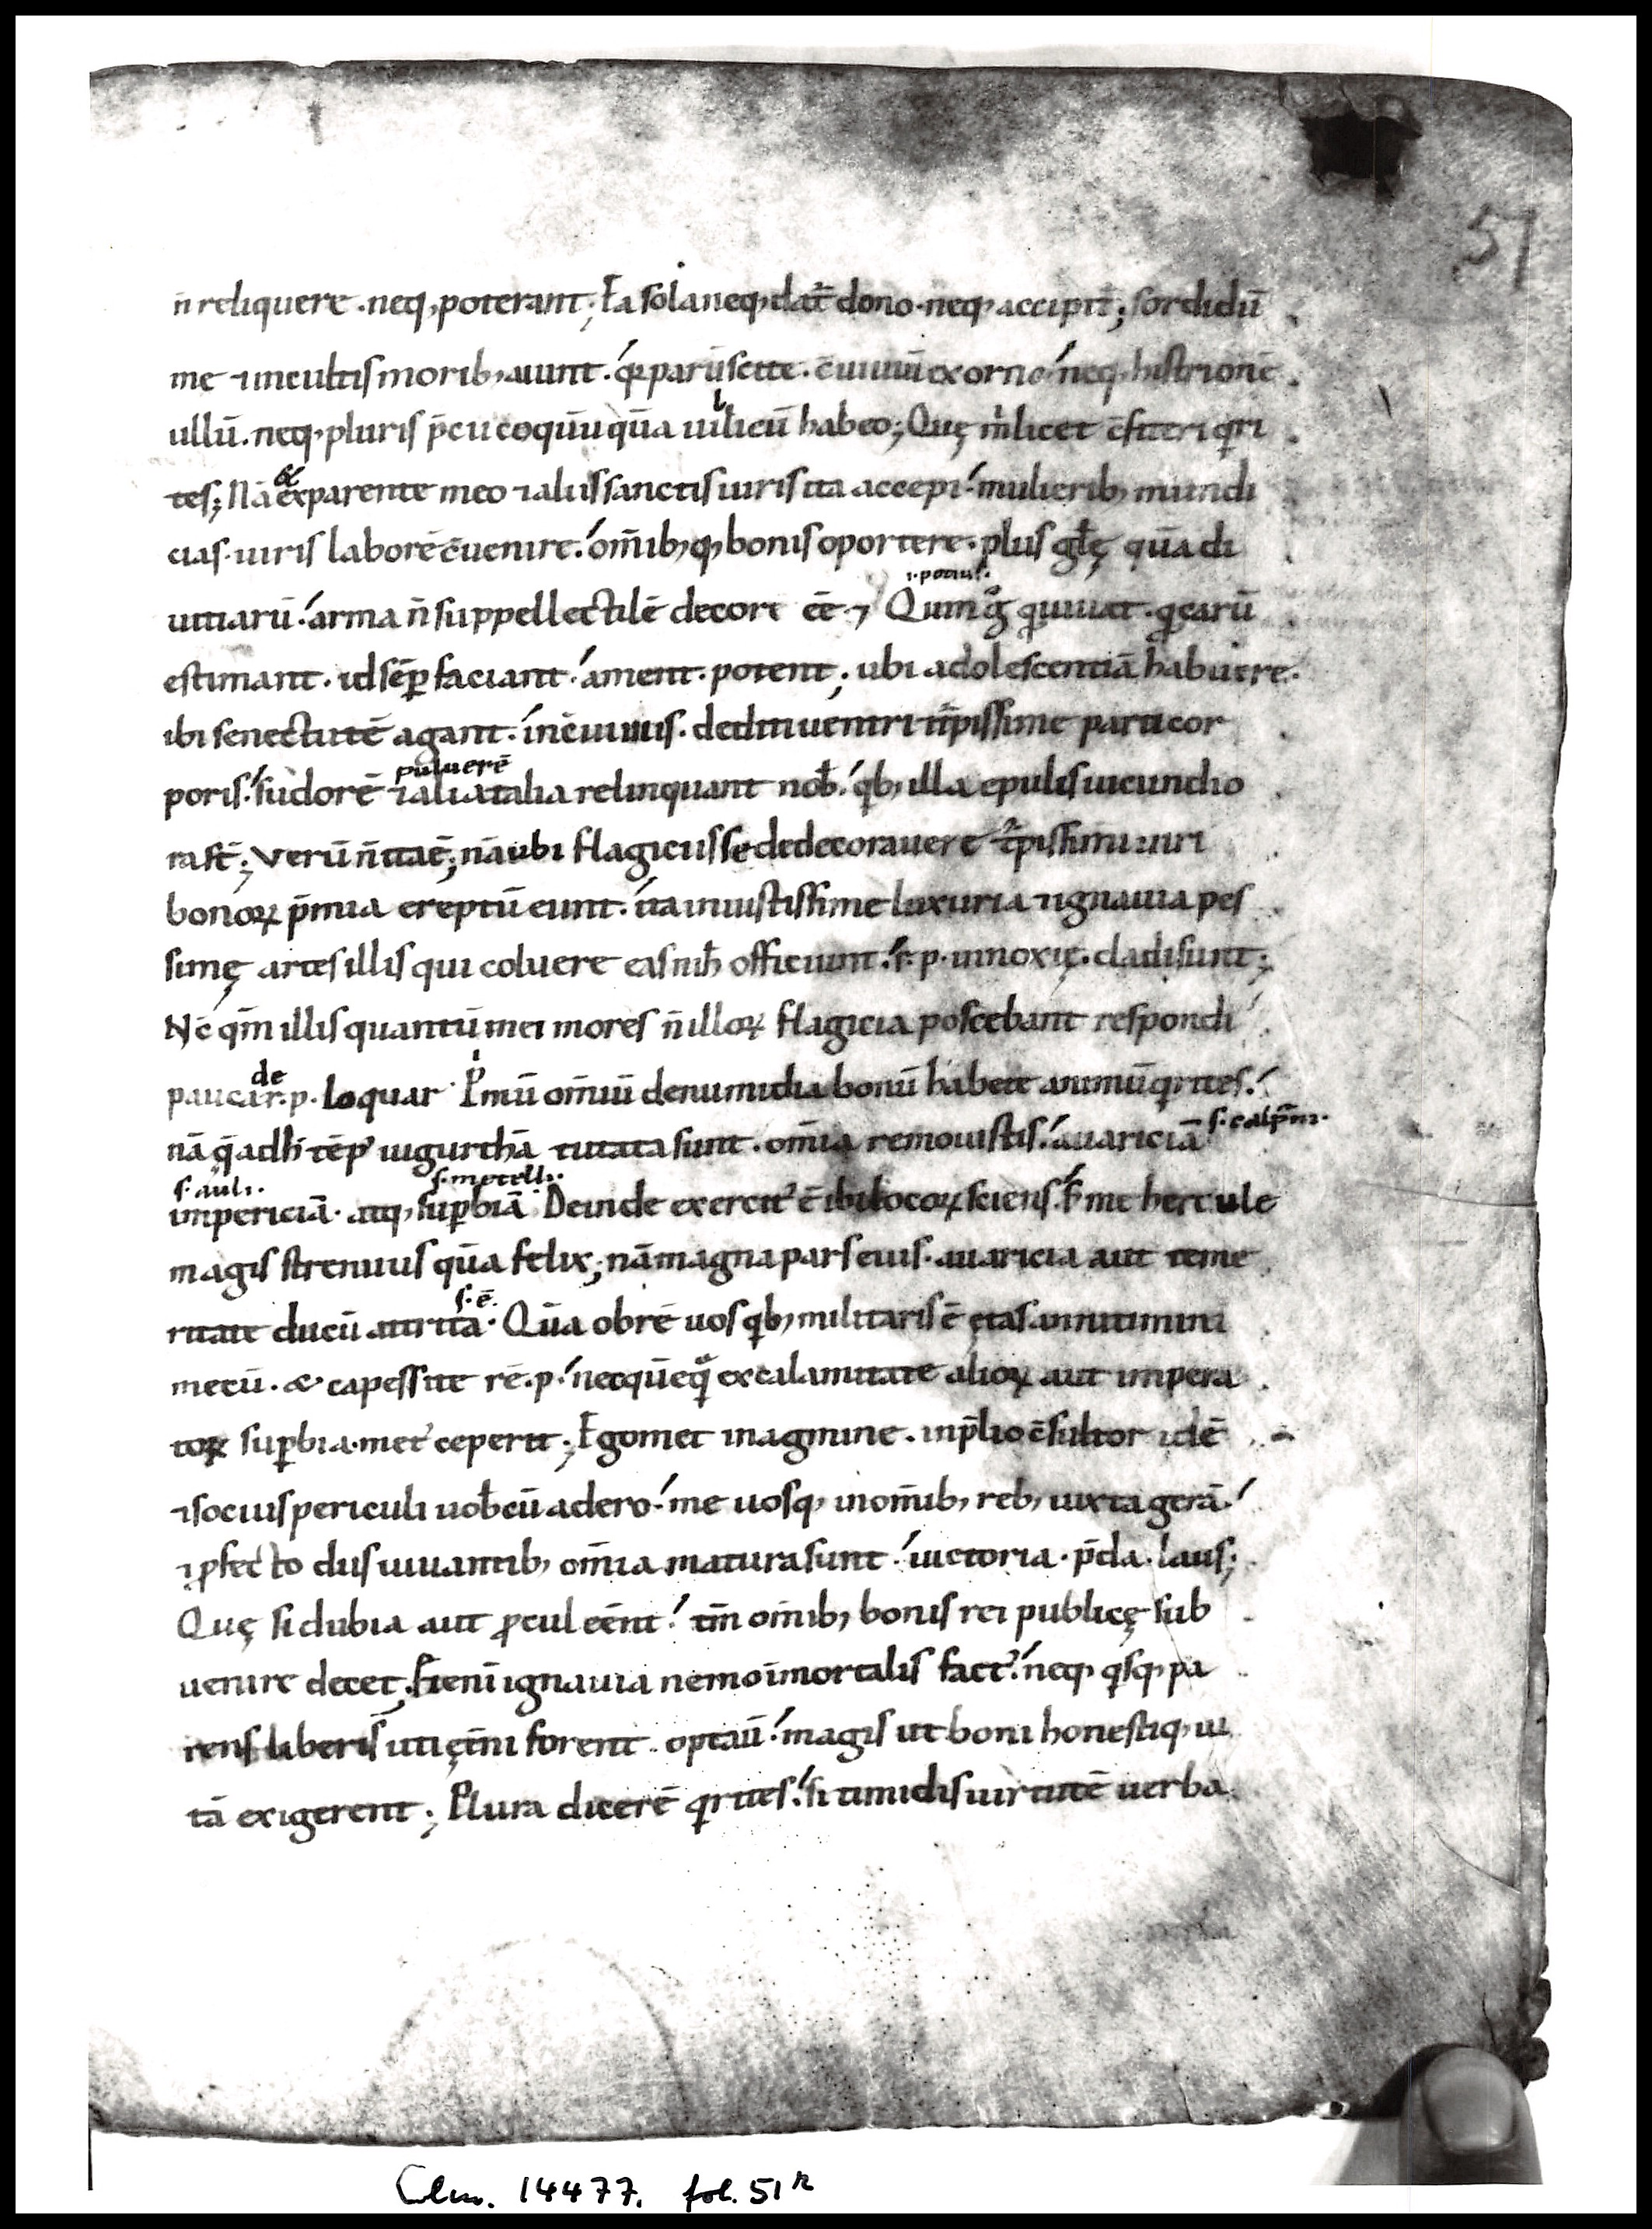 51
n̄ reliquere . neq; poterant; Ea sola neq; dat̄ dono . neq; accipit̄; sordidū
me ⁊ incultis morib; aiunt . qꝛ parū scite . c̄uiuiū exorno neq; histrionē
ullū . neq; pluris p̄cii coquū quā uilicū habeo; Quę m̄ licet c̄fiteri qͥri
tes; Nā & ex parente meo ⁊ aliis sanctis uiris ita accepi mulierib; mundi
cias . uiris laborē c̄uenire . om̄ib; q; bonis oportere . plus głę quā di
i. potius.
uitiarū . arma n̄ suppellectilē decori eē . Quin g̊ qͦ iuuat . qͦ carū
estimant . id sēp faciant . ament . potent; ubi adolescentiā habuere .
ibi senectutē agant . in c̄uiuiis . dediti uentri t̄pissime parti cor
puluerē
poris . sudorē ⁊ alia talia relinquant nob̄ . qͥb; illa epulis iucundio
ra st̄; Verū n̄ ita ē; nā ubi flagiciis se dedecorauere t̄pissimi uiri
bonoꝝ p̄mia ereptū eunt . ita iniustissime luxuria ⁊ ignauia pes
simę artes illis qui coluere eas nih̄ officiunt . r . p . innoxię . cladi sunt;
Nc̄ qm̄ illis quantū mei mores n̄ illoꝝ flagicia poscebant respondi
de
pauca r . p . loquar . Pͥmū om̄iū de numidia bonū habete animū qͥrites .
nā q̄ ad h̄ tēp' iugurthā tutata sunt . om̄ia remouistis . auariciā s . calp̄ni .
s . auli . s . metelli .
impericiā . atq; sup̱biā . Deinde exercit' ē ibi locoꝝ sciens . s; me hercule
magis strenuus quā felix; nā magna pars eius . auaricia aut teme
s . ē .
ritate ducū attrita . Quā obrē uos qͥb; militaris ē ętas annitimini
mecū . & capessite rē . p . neq̄ quēqͣ̄ ex calamitate alioꝝ aut impera
toꝝ sup̱bia . met' ceperit; Egomet in agmine . in p̄lio c̄sultor idē
⁊ socius periculi uob̄cū adero . me uosq; in om̄ib; reb; iuxta gerā .
⁊ ꝓfecto diis iuuantib; om̄ia matura sunt . uictoria . p̄da . laus;
Quę si dubia aut ꝓcul eēnt . tm̄ om̄ib; bonis rei publicę sub
uenire decet . Et eni ignauia nemo īmortalis fact' . neq; qͥsq; pa
rens liberis uti ęt̄ni forent . optau̅ . magis ut boni honestiq; ui
tā exigerent; Plura dicerē qͥrites . si timidis uirtutē uerba
Clm. 14477. fol. 51 r